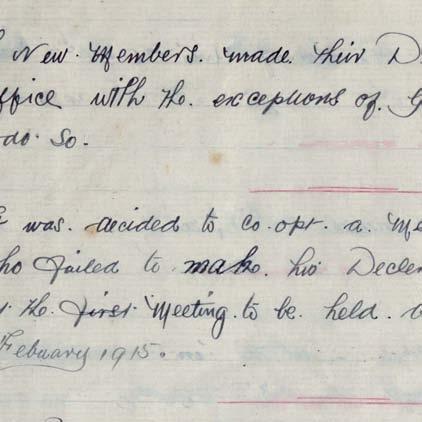 New. Members. made. their
office with the. exceptions of.
do. so.
was. decided to co. opt. a.
failed to make. his
the. first. Meeting. to be. held.
Febuary 1915.